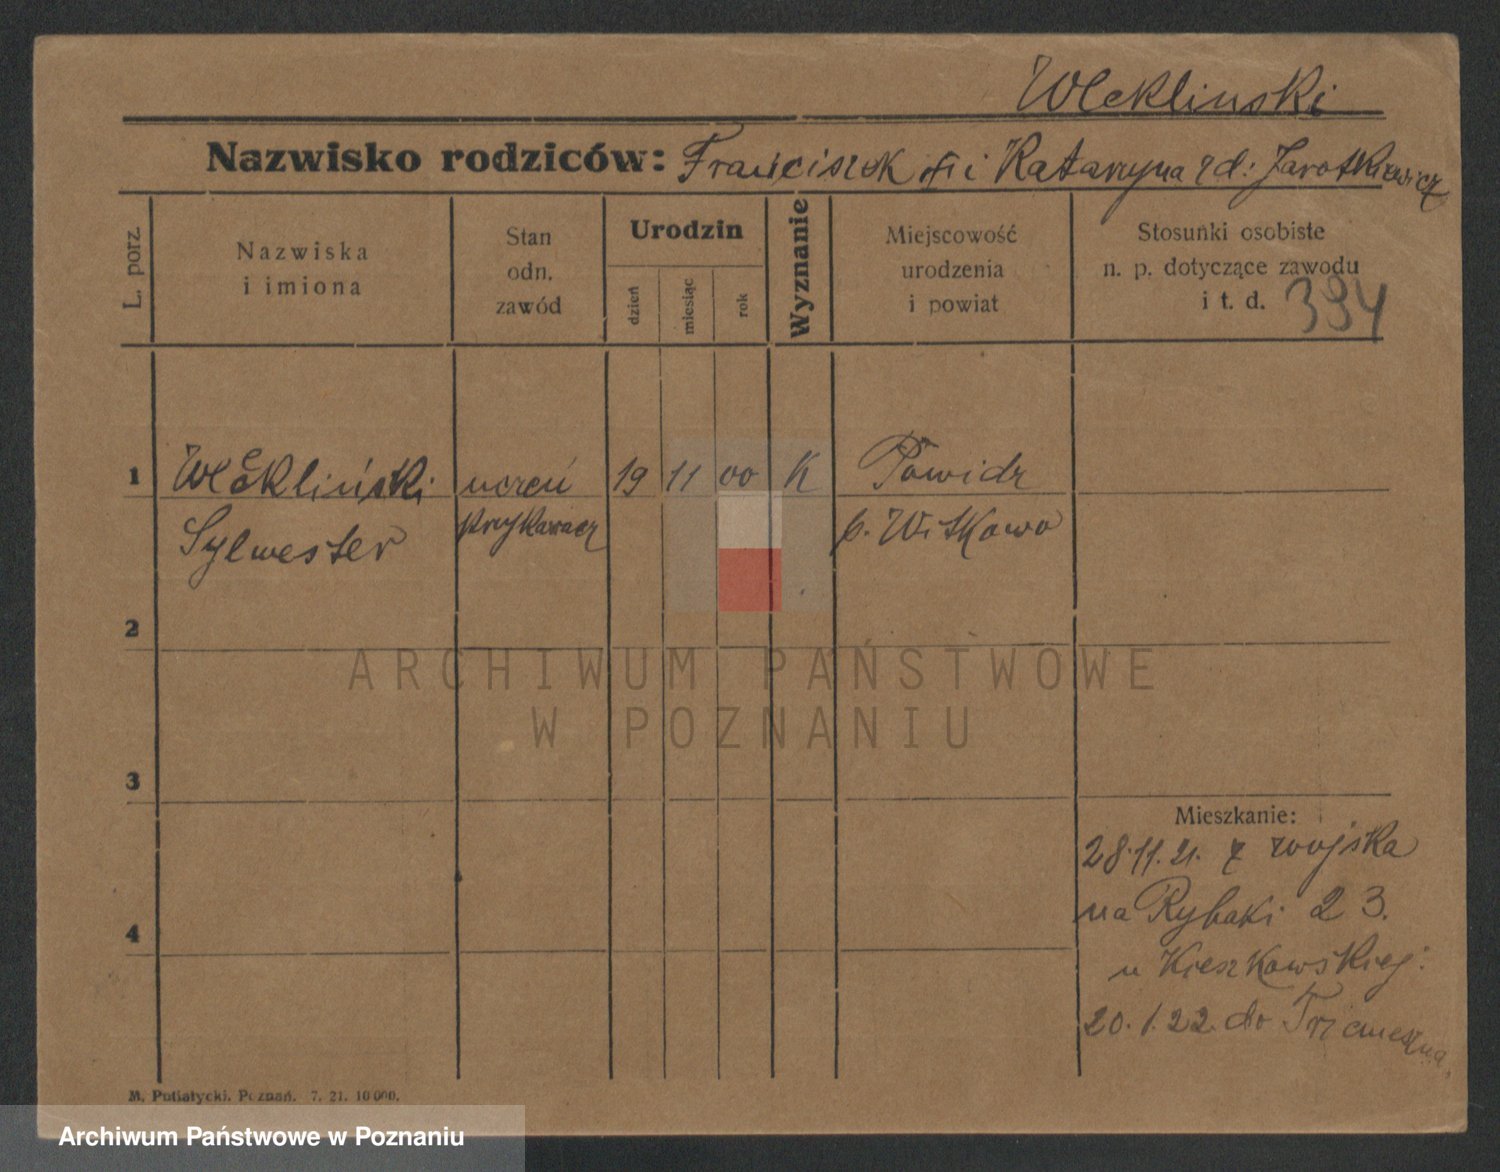 Weklinski
Nazwisko rodziców: Franciszek i Katarzyna rd: Jarotkiewicz
L. porz.
Nazwiska
i imiona
Stan
odn.
zawód
Urodzin
dzień
miesiąc
rok
Wyznanie
Miejscowość
urodzenia
i powiat
Stosunki osobiste
n. p. dotyczące zawodu
i t. d. 394
1 Wekliński uczeń 19 11 00 K Powidz
Sylwester p. Witkowo
2
ARCHIWUM PAŃSTWOWE
W POZNANIU
3
Mieszkanie:
28.11.21. z wojska
4 na Rybaki 23.
u Kieszkowskiej.
20.1.22. do Trzemeszna
M. Putiatycki. Poznań. 7. 21. 10000.
Archiwum Państwowe w Poznaniu